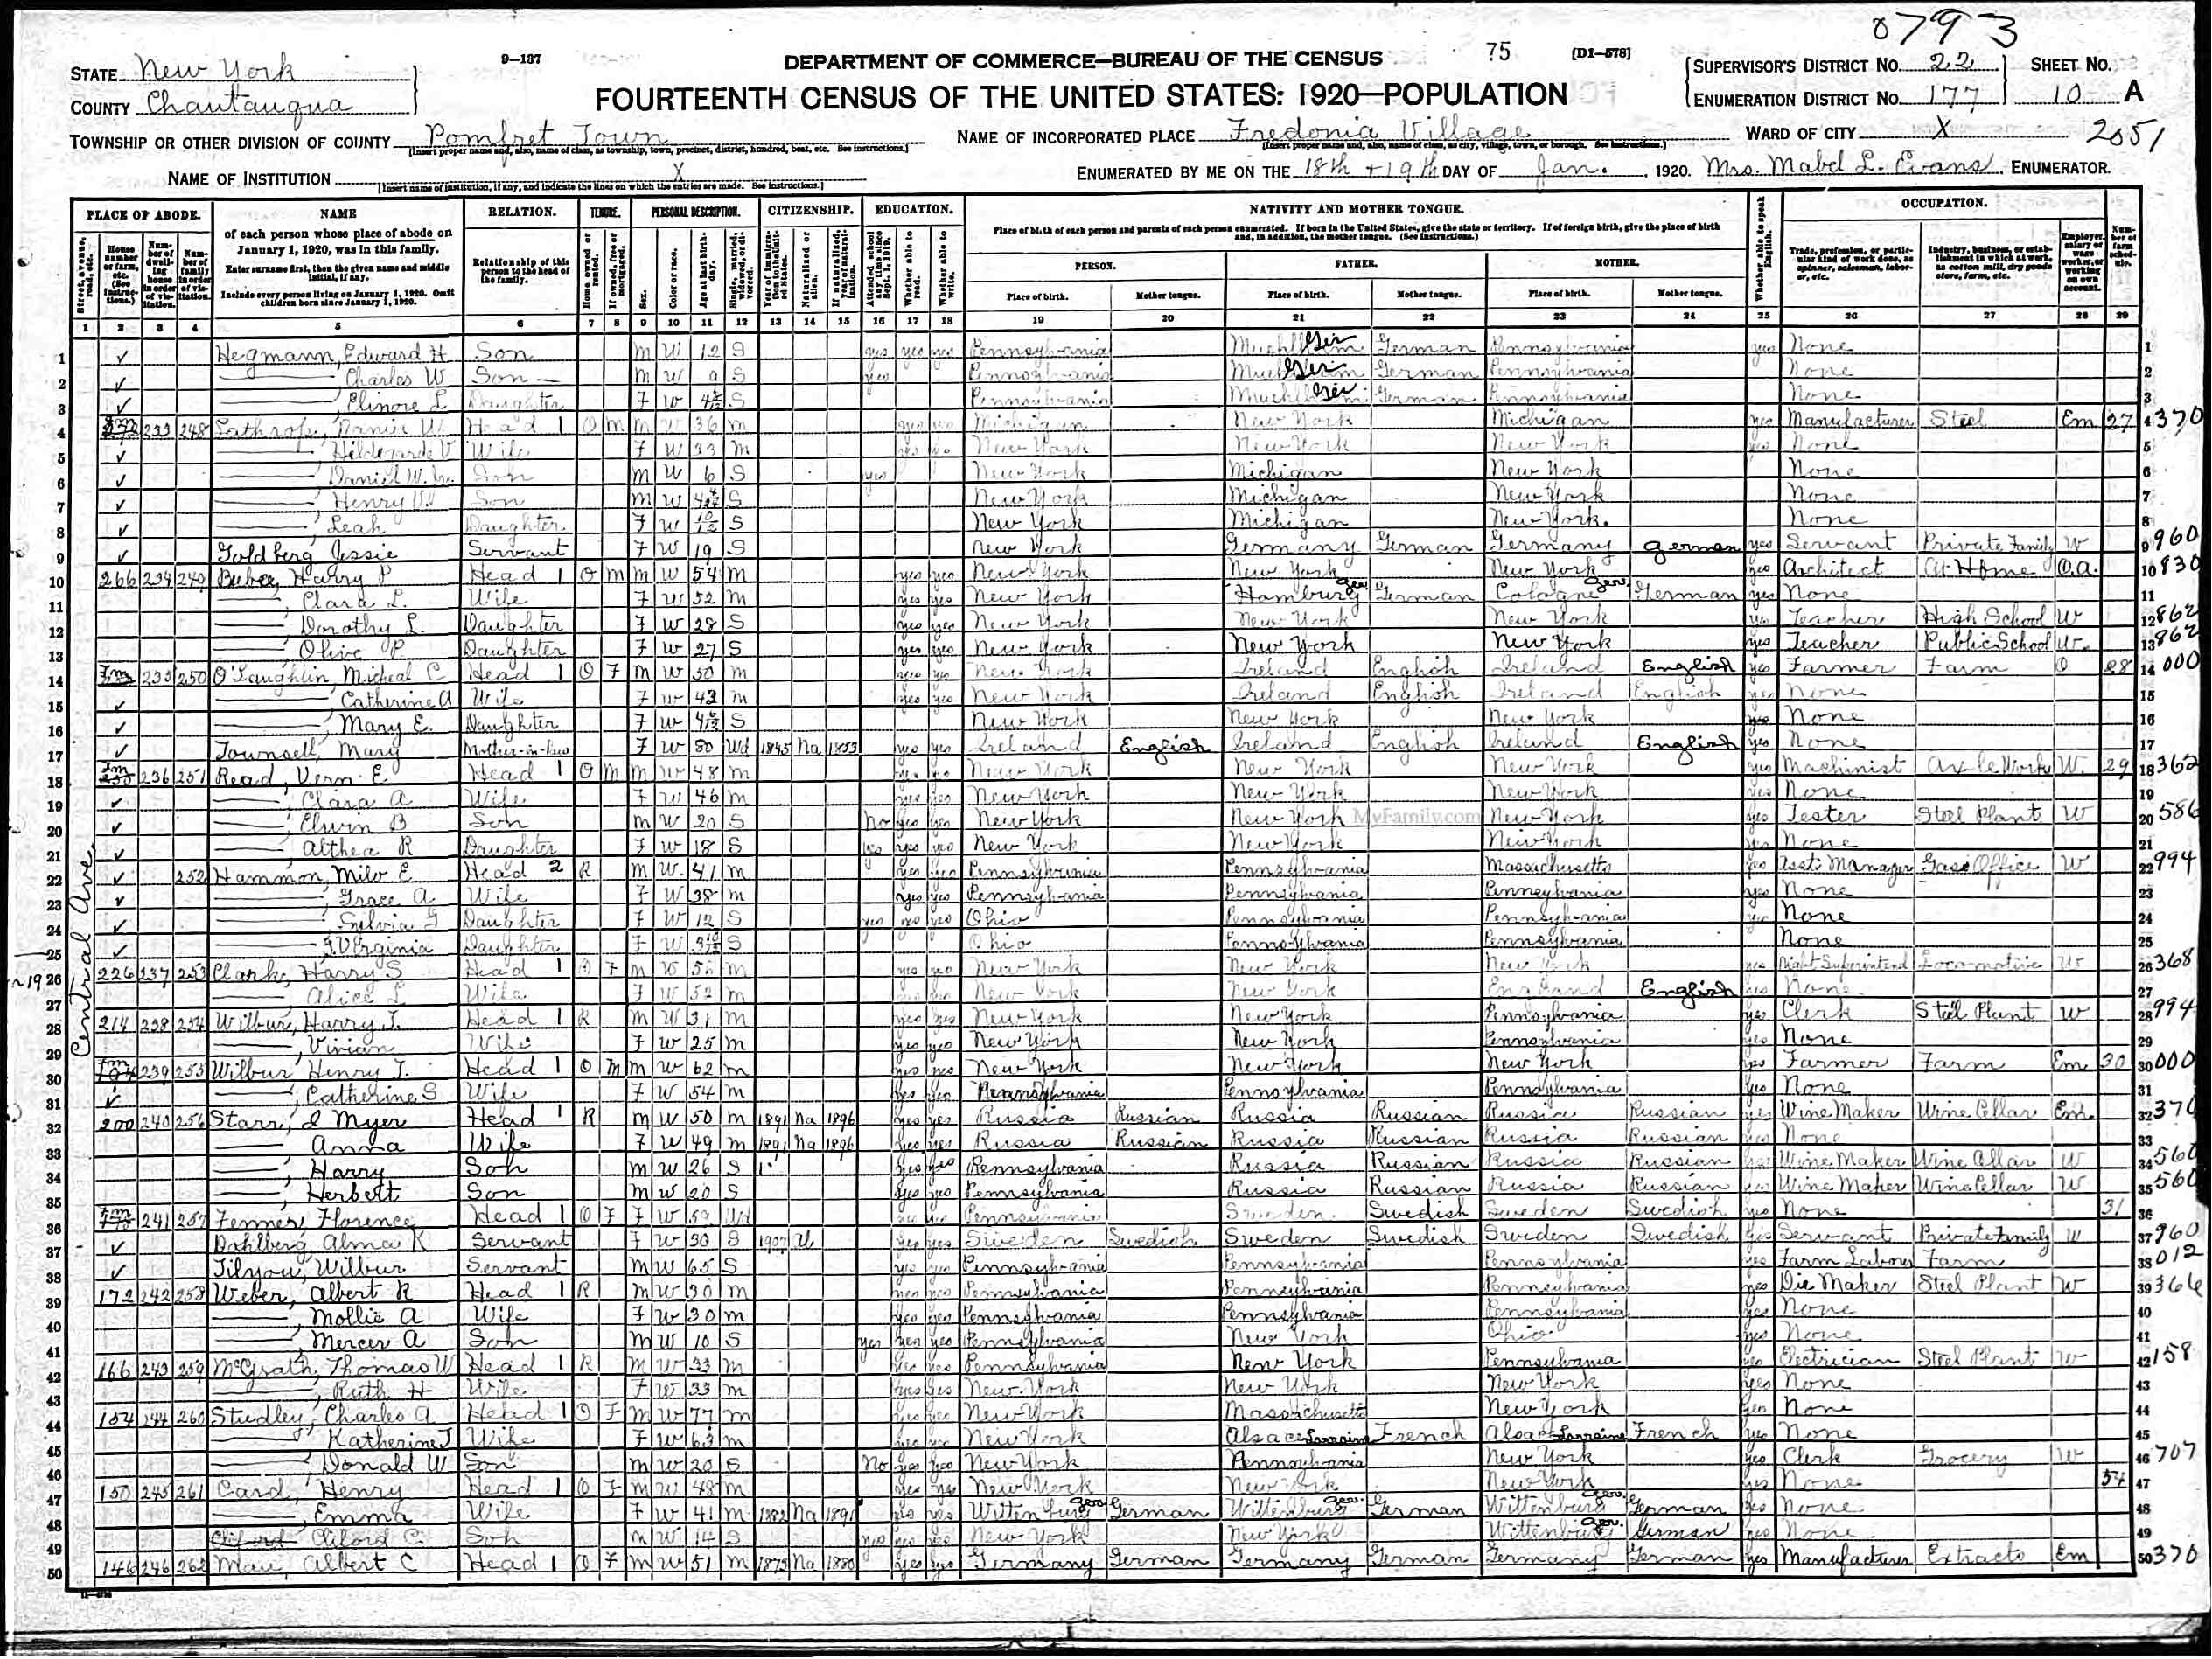 0793
STATE New York
COUNTY Chautauqua
9-137
DEPARTMENT OF COMMERCE—BUREAU OF THE CENSUS
75
[D1-578]
FOURTEENTH CENSUS OF THE UNITED STATES: 1920—POPULATION
SUPERVISOR'S DISTRICT No. 22
SHEET No.
ENUMERATION DISTRICT No. 177
10 A
TOWNSHIP OR OTHER DIVISION OF COUNTY Pomfret Town
[Insert proper name and, also, name of class, as township, town, precinct, district, hundred, beat, etc. See instructions.]
NAME OF INCORPORATED PLACE Fredonia Village
[Insert proper name and, also, name of class, as city, village, town, or borough. See instructions.]
WARD OF CITY X
2051
NAME OF INSTITUTION X
[Insert name of institution, if any, and indicate the lines on which the entries are made. See instructions.]
ENUMERATED BY ME ON THE 18th + 19th DAY OF Jan., 1920. Mrs. Mabel L. Evans, ENUMERATOR.
PLACE OF ABODE. NAME RELATION. TENURE. PERSONAL DESCRIPTION. CITIZENSHIP. EDUCATION. NATIVITY AND MOTHER TONGUE. OCCUPATION.
of each person whose place of abode on January 1, 1920, was in this family.
Enter surname first, then the given name and middle initial, if any.
Include every person living on January 1, 1920. Omit children born since January 1, 1920.
Relationship of this person to the head of the family.
Place of birth of each person and parents of each person enumerated. If born in the United States, give the state or territory. If of foreign birth, give the place of birth and, in addition, the mother tongue. (See instructions.)
PERSON. FATHER. MOTHER.
Place of birth. Mother tongue. Place of birth. Mother tongue. Place of birth. Mother tongue.
1 2 3 4 5 6 7 8 9 10 11 12 13 14 15 16 17 18 19 20 21 22 23 24 25 26 27 28 29
Central Ave
1 Hegmann, Edward H Son m W 12 S yes yes yes Pennsylvania German Pennsylvania yes None 1
2 Charles W Son m W 9 S yes Pennsylvania German Pennsylvania None 2
3 Elinore L Daughter F W S Pennsylvania German Pennsylvania None 3
4 233 248 Lathrop, Daniel W Head 1 O m m W 36 m yes yes Michigan New York Michigan yes Manufacturer Steel Em 27 4 370
5 Hildegarde V Wife F W 33 m yes yes New York New York New York yes None 5
6 Daniel W. Jr. Son m W 6 S yes New York Michigan New York None 6
7 Henry Son m W S New York Michigan New York None 7
8 Leah Daughter F W 10/12 S New York Michigan New York. None 8
9 Goldberg Jessie Servant F W 19 S New York Germany German Germany German yes Servant Private Family W 9 960
10 266 234 249 Harry P Head 1 O m m W 54 m yes yes New York New York New York yes Architect At Home O.a. 10 830
11 Clara L. Wife F W 52 m yes yes New York Hamburg Ger German Cologne Ger. German yes None 11
12 Dorothy L. Daughter F W 28 S yes yes New York New York New York yes Teacher High School W 12 862
13 Olive P Daughter F W 27 S yes yes New York New York New York yes Teacher Public School W. 13 862
14 Fm 235 250 O'Laughlin Micheal C Head 1 O F m W 50 m yes yes New York Ireland English Ireland English yes Farmer Farm O 28 14 000
15 Catherine A Wife F W 43 m yes yes New York Ireland English Ireland English yes None 15
16 Mary E. Daughter F W S New York New York New York None 16
17 Townsell, Mary Mother-in-law F W 80 Wd 1845 Na 1853 yes yes Ireland English Ireland English Ireland English yes None 17
18 Fm 236 251 Read, Vern E Head 1 O m m W 48 m yes yes New York New York New York yes Machinist Axle Works W. 29 18 362
19 Clara A Wife F W 46 m yes yes New York New York New York yes None 19
20 Elwin B Son m W 20 S No yes yes New York New York New York yes Tester Steel Plant W 20 586
21 Althea R Daughter F W 18 S yes yes New York New York New York yes None 21
22 252 Hammon, Milo E Head 2 R m W. 41 m yes yes Pennsylvania Pennsylvania Massachusetts yes Asst Manager Gas Office W 22 994
23 Grace A Wife F W 38 m yes yes Pennsylvania Pennsylvania Pennsylvania yes None 23
24 Silvia G Daughter F W 12 S yes yes yes Ohio Pennsylvania Pennsylvania yes None 24
25 Virginia Daughter F W S Ohio Pennsylvania Pennsylvania None 25
26 226 237 253 Clark, Harry S Head 1 O F m W m yes yes New York New York New York yes Night Superintend Locomotive W 26 368
27 Alice L Wife F W 52 m New York New York England English yes None 27
28 214 238 254 Wilbur, Harry J. Head 1 R m W 31 m yes yes New York New York Pennsylvania yes Clerk Steel Plant W 28 994
29 Vivian Wife F W 25 m yes yes New York New York Pennsylvania yes None 29
30 Fm 239 255 Wilbur Henry J. Head 1 O m m W 62 m yes yes New York New York New York yes Farmer Farm Em 30 30 000
31 Catherine S Wife F W 54 m yes yes Pennsylvania Pennsylvania Pennsylvania yes None 31
32 200 240 256 Starr, I Myer Head 1 R m W 50 m 1891 Na 1896 yes yes Russia Russian Russia Russian Russia Russian yes Wine Maker Wine Cellar Em. 32 370
33 Anna Wife F W 49 m 1891 Na 1896 yes yes Russia Russian Russia Russian Russia Russian yes None 33
34 Harry Son m W 26 S yes yes Pennsylvania Russia Russian Russia Russian yes Wine Maker Wine Cellar W 34 560
35 Herbert Son m W 20 S yes yes Pennsylvania Russia Russian Russia Russian yes Wine Maker Wine Cellar W 35 560
36 Fm 241 257 Fenner, Florence Head 1 O F F W Wd Pennsylvania Sweden Swedish Sweden Swedish yes None 31 36
37 Dahlberg Alma K Servant F W 30 S 1907 Al yes yes Sweden Swedish Sweden Swedish Sweden Swedish yes Servant Private Family W 37 960
38 Tilyou, Wilbur Servant m W 65 S yes yes Pennsylvania Pennsylvania Pennsylvania yes Farm Labour Farm 38 012
39 172 242 258 Weber, Albert R Head 1 R m W 30 m yes yes Pennsylvania Pennsylvania Pennsylvania yes Die Maker Steel Plant W 39 366
40 Mollie A Wife F W 30 m yes yes Pennsylvania Pennsylvania Pennsylvania yes None 40
41 Mercer A Son m W 10 S yes yes yes Pennsylvania New York Ohio yes None 41
42 166 243 259 McGrath, Thomas W Head 1 R m W 33 m yes yes Pennsylvania New York Pennsylvania yes Electrician Steel Plant W 42 158
43 Ruth H Wife F W 33 m yes yes New York New York New York yes None 43
44 154 244 260 Studley, Charles A Head 1 O F m W 77 m yes yes New York Massachusetts New York yes None 44
45 Katherine J Wife F W 63 m yes yes New York Alsace Lorraine French Alsace Lorraine French yes None 45
46 Donald W Son m W 20 S No yes yes New York Pennsylvania New York yes Clerk Grocery W 46 707
47 150 245 261 Card, Henry Head 1 O F m W 48 m yes yes New York New York New York yes None 54 47
48 Emma Wife F W 41 m 1882 Na 1891 yes yes Wittenburg Ger German Wittenburg Ger. German Wittenburg Ger. German yes None 48
49 Cliford C. Son m W 14 S yes yes yes New York New York Wittenburg Ger. German yes None 49
50 146 246 262 Albert C Head 1 O F m W 51 m 1873 Na 1880 yes yes Germany German Germany German Germany German yes Manufacturer Extracts Em 50 370
MyFamily.com